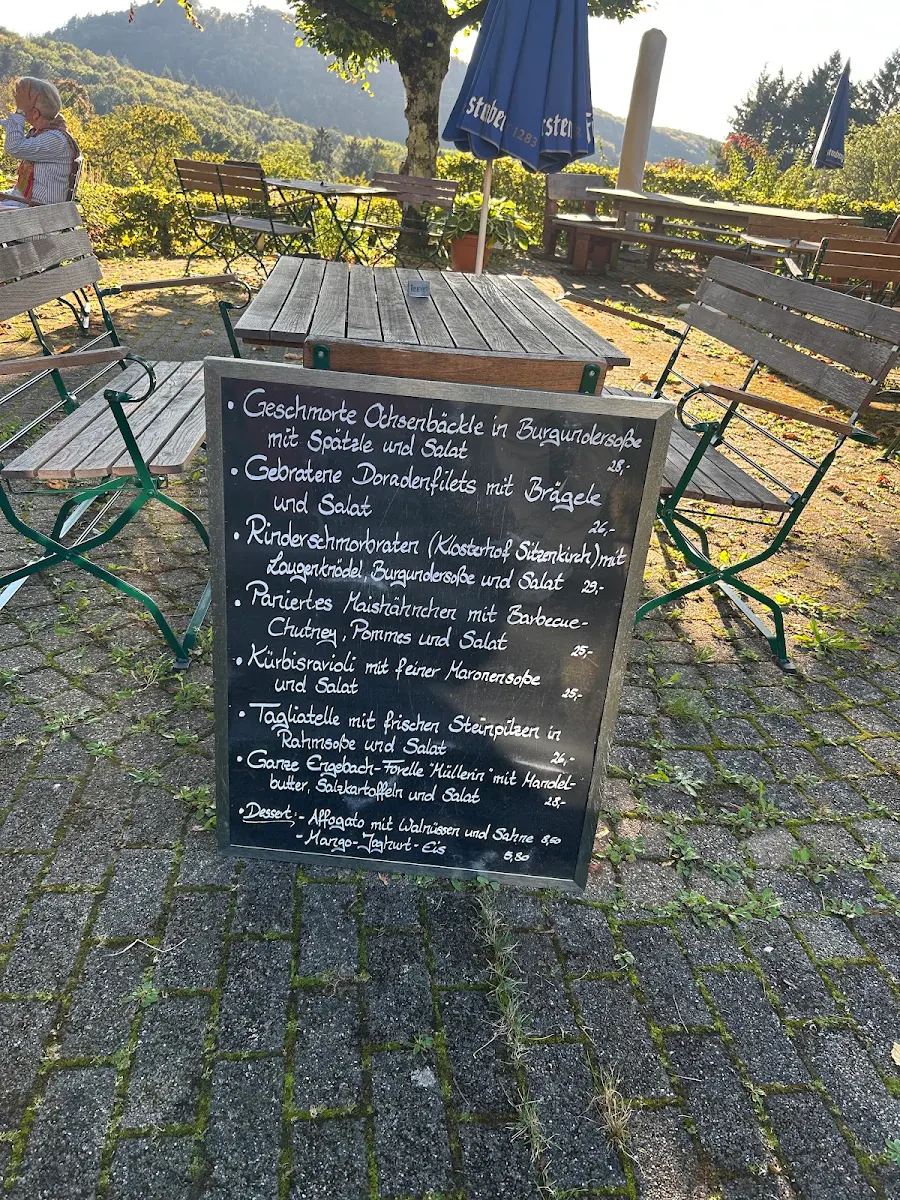 • Geschmorte Ochsenbäckle in Burgundersoße
mit Spätzle und Salat 28,-
• Gebratene Doradenfilets mit Brägele
und Salat 26,-
• Rinderschmorbraten (Klosterhof Sitzenkirch) mit
Laugenknödel, Burgundersoße und Salat 29,-
• Paniertes Maishähnchen mit Barbecue-
Chutney, Pommes und Salat 25,-
• Kürbisravioli mit feiner Maronensoße
und Salat 25,-
• Tagliatelle mit frischen Steinpilzen in
Rahmsoße und Salat 26,-
• Ganze Engebach-Forelle "Müllerin" mit Mandel-
butter, Salzkartoffeln und Salat 28,-
• Dessert: - Affogato mit Walnüssen und Sahne 8,50
- Mango-Joghurt-Eis 5,80
1283